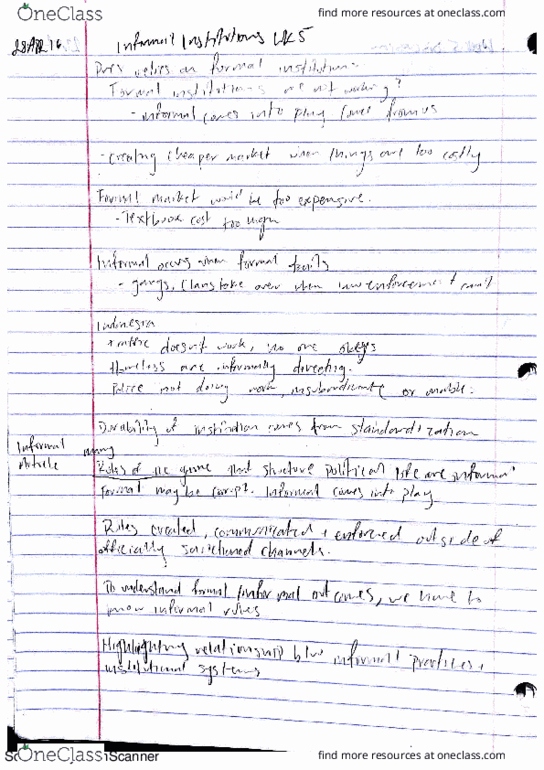 OneClass
find more resources at oneclass.com
28 APR 16
Informal Institutions WK 5
relies on formal institutions
Formal institutions are not working?
- informal comes into play comes from us
- creating cheaper market when things are too costly
Formal market would be too expensive.
- Textbook cost too high
Informal occurs when formal fails
- gangs, clans take over when law enforcement can't
Indonesia
traffic doesn't work, no one obeys
Homeless are informally directing.
Police not doing work, insubordinate or unable.
Durability of institution comes from standardization
Informal Article
many
Rules of the game that structure political life are informal
Formal may be corrupt. Informal comes into play
Rules created, communicated + enforced outside of
officially sanctioned channels.
To understand formal/informal outcomes, we have to
know informal rules
Highlighting relationship b/w informal practices +
institutional systems
OneClass
Scanner
find more resources at oneclass.com